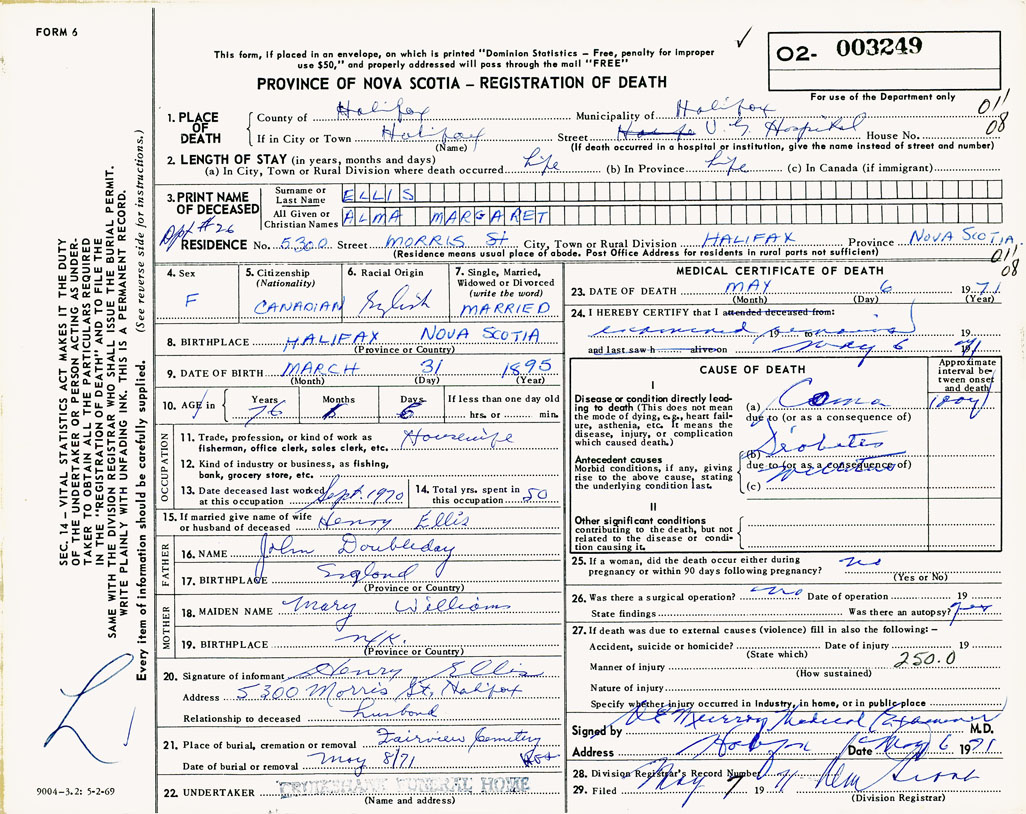 FORM 6
✓
This form, if placed in an envelope, on which is printed "Dominion Statistics – Free, penalty for improper
use $50," and properly addressed will pass through the mail "FREE"
02- 003249
PROVINCE OF NOVA SCOTIA – REGISTRATION OF DEATH
For use of the Department only
1. PLACE OF DEATH
County of Halifax Municipality of Halifax 011
If in City or Town Halifax Street V. G. Hospital House No. 08
(Name) (If death occurred in a hospital or institution, give the name instead of street and number)
2. LENGTH OF STAY (in years, months and days)
(a) In City, Town or Rural Division where death occurred Life (b) In Province Life (c) In Canada (if immigrant)
3. PRINT NAME OF DECEASED
Surname or Last Name ELLIS
All Given or Christian Names ALMA MARGARET
Apt #26
RESIDENCE No. 5300 Street MORRIS St City, Town or Rural Division HALIFAX Province NOVA SCOTIA
(Residence means usual place of abode. Post Office Address for residents in rural parts not sufficient) 011
08
4. Sex F
5. Citizenship (Nationality) CANADIAN
6. Racial Origin English
7. Single, Married, Widowed or Divorced (write the word) MARRIED
8. BIRTHPLACE HALIFAX NOVA SCOTIA
(Province or Country)
9. DATE OF BIRTH MARCH 31 1895
(Month) (Day) (Year)
10. AGE in Years Months Days If less than one day old
76 6 hrs. or min.
OCCUPATION
11. Trade, profession, or kind of work as Housewife
fisherman, office clerk, sales clerk, etc.
12. Kind of industry or business, as fishing,
bank, grocery store, etc.
13. Date deceased last worked at this occupation Sept. 1970
14. Total yrs. spent in this occupation 50
15. If married give name of wife or husband of deceased Henry Ellis
FATHER
16. NAME John Doubleday
17. BIRTHPLACE England
(Province or Country)
MOTHER
18. MAIDEN NAME Mary Williams
19. BIRTHPLACE N/K.
(Province or Country)
20. Signature of informant Henry Ellis
Address 5300 Morris St, Halifax
Relationship to deceased husband
21. Place of burial, cremation or removal Fairview Cemetery
Date of burial or removal May 8/71
22. UNDERTAKER CRUIKSHANK FUNERAL HOME
(Name and address)
MEDICAL CERTIFICATE OF DEATH
23. DATE OF DEATH MAY 6 1971
(Month) (Day) (Year)
24. I HEREBY CERTIFY that I attended deceased from:
examined remains 19 to 19
and last saw h alive on May 6 1971
CAUSE OF DEATH
Approximate interval between onset and death
I
Disease or condition directly leading to death (This does not mean the mode of dying, e.g., heart failure, asthenia, etc. It means the disease, injury, or complication which caused death.)
(a) Coma 1 day
due to (or as a consequence of)
Antecedent causes
Morbid conditions, if any, giving rise to the above cause, stating the underlying condition last.
(b) Diabetes
due to (or as a consequence of)
(c)
II
Other significant conditions
contributing to the death, but not related to the disease or condition causing it.
25. If a woman, did the death occur either during
pregnancy or within 90 days following pregnancy? no
(Yes or No)
26. Was there a surgical operation? no Date of operation 19
State findings Was there an autopsy? yes
27. If death was due to external causes (violence) fill in also the following: –
Accident, suicide or homicide? Date of injury 19
(State which) 250.0
Manner of injury
(How sustained)
Nature of injury
Specify whether injury occurred in industry, in home, or in public place
Signed by Murray Medical Examiner M.D.
Address Date May 6 1971
28. Division Registrar's Record Number
29. Filed May 7 1971
(Division Registrar)
SEC. 14 – VITAL STATISTICS ACT MAKES IT THE DUTY
OF THE UNDERTAKER OR PERSON ACTING AS UNDER-
TAKER TO OBTAIN ALL THE PARTICULARS REQUIRED
IN THE "REGISTRATION OF DEATH" AND TO FILE THE
SAME WITH THE DIVISION REGISTRAR WHO SHALL ISSUE THE BURIAL PERMIT.
WRITE PLAINLY WITH UNFADING INK. THIS IS A PERMANENT RECORD.
Every item of information should be carefully supplied. (See reverse side for instructions.)
9004–3.2: 5-2-69